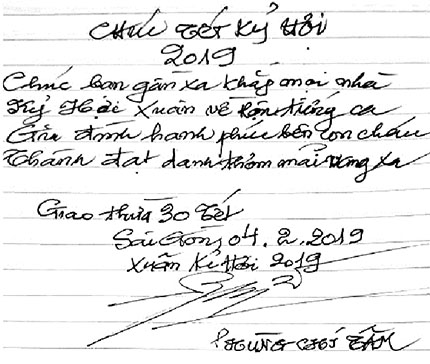 CHÚC TẾT KỶ HỢI
2019
Chúc bạn gần xa khắp mọi nhà
Kỷ Hợi Xuân về rộn tiếng ca
Gia đình hạnh phúc bên con cháu
Thành đạt danh thơm mãi vang xa
Giao thừa 30 Tết
Sài Gòn, 04.2.2019
Xuân Kỉ Hợi 2019
PHÙNG CHÍ TÂM